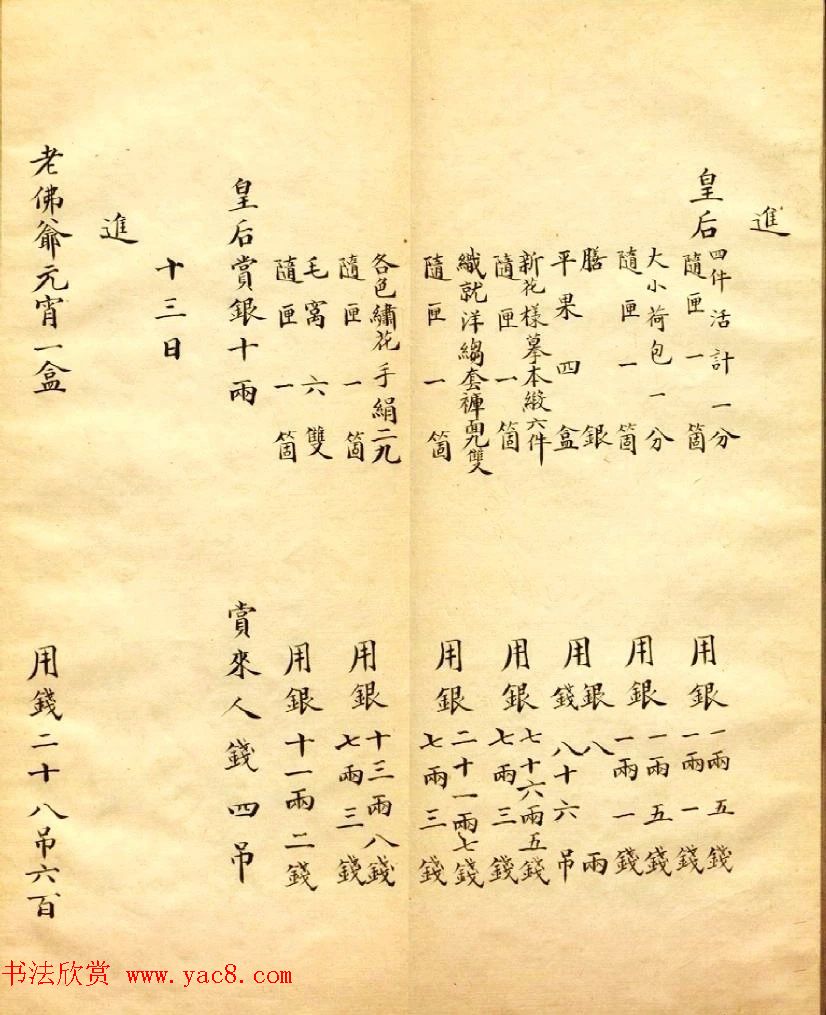 進
皇后
四件活計一分
隨匣一箇
用銀
一兩五錢
一兩一錢
大小荷包一分
隨匣一箇
用銀
一兩五錢
一兩一錢
膳銀
平果四盒
用
銀八兩
錢八十六吊
新花樣摹本緞六件
隨匣一箇
用銀
七十六兩五錢
七兩三錢
織就洋縐套褲九雙
隨匣一箇
用銀
二十一兩七錢
七兩三錢
各色繡花手絹二九
隨匣一箇
用銀
十三兩八錢
七兩三錢
毛窩六雙
隨匣一箇
用銀十一兩二錢
皇后賞銀十兩
賞來人錢四吊
十三日
進
老佛爺元宵一盒
用錢二十八吊六百
书法欣赏 www.yac8.com